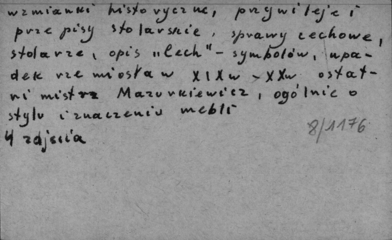 wzmianki historyczne, przywileje i
prze pisy stolarskie, sprawy cechowe,
stolarze, opis "Cech" - symbolów, upa-
dek rzemiosła w XIXw - XXw ostat-
ni mistrz Mazurkiewicz, ogólnie o
stylu i znaczeniu mebli
4 zdjęcia
8/1176